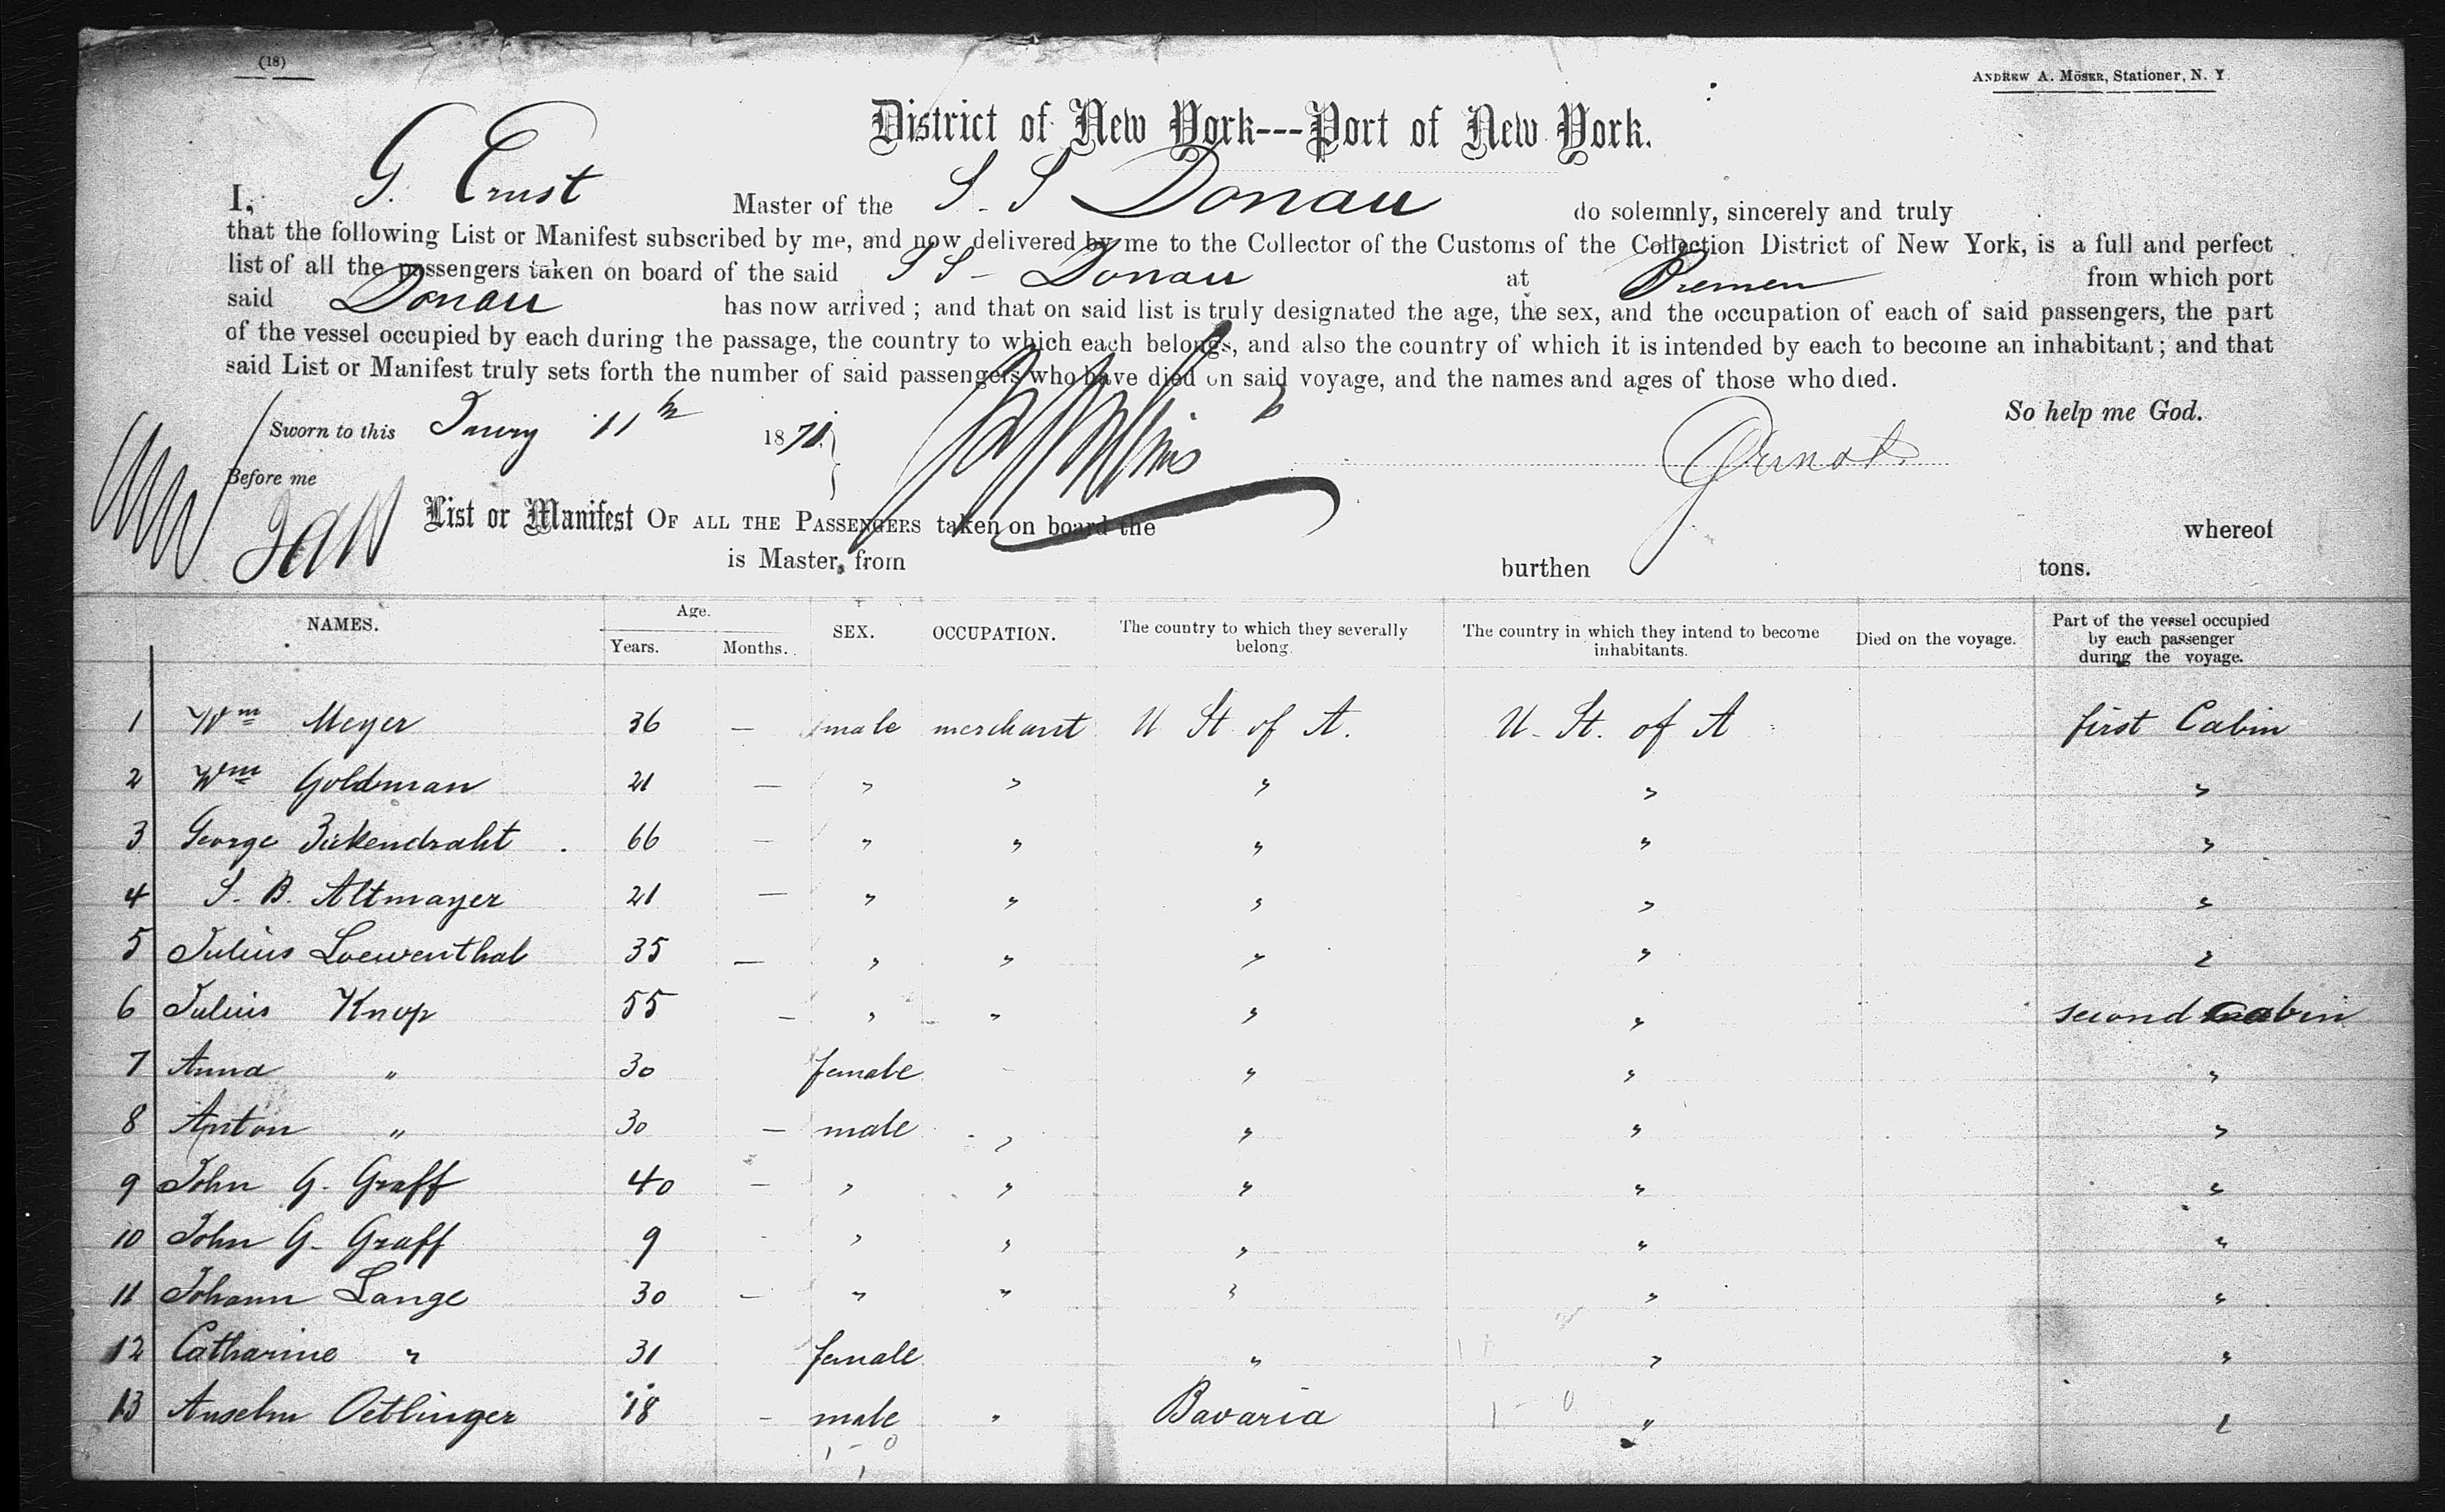 (18)
ANDREW A. MOSER, Stationer, N. Y.
District of New York---Port of New York.
I, G. Ernst Master of the S. S Donau do solemnly, sincerely and truly
that the following List or Manifest subscribed by me, and now delivered by me to the Collector of the Customs of the Collection District of New York, is a full and perfect
list of all the passengers taken on board of the said SS - Donau at Bremen from which port
said Donau has now arrived ; and that on said list is truly designated the age, the sex, and the occupation of each of said passengers, the part
of the vessel occupied by each during the passage, the country to which each belongs, and also the country of which it is intended by each to become an inhabitant ; and that
said List or Manifest truly sets forth the number of said passengers who have died on said voyage, and the names and ages of those who died.
So help me God.
Sworn to this Janry 11th 1871
GErnst
Before me
List or Manifest OF ALL THE PASSENGERS taken on board the whereof
is Master, from burthen tons.
NAMES. Age. Years. Months. SEX. OCCUPATION. The country to which they severally belong. The country in which they intend to become inhabitants. Died on the voyage. Part of the vessel occupied by each passenger during the voyage.
1 Wm Meyer 36 — male merchant U St of A. U. St. of A first Cabin
2 Wm Goldman 21 — " " " " "
3 George Zickendraht 66 — " " " " "
4 S. B. Altmayer 21 — " " " " "
5 Julius Loewenthal 35 — " " " " "
6 Julius Knop 55 — " " " " second Cabin
7 Anna " 30 female " " "
8 Anton " 30 — male " " " "
9 John G. Graff 40 — " " " " "
10 John G. Graff 9 " " " " "
11 Johann Lange 30 — " " " " "
12 Catharine " 31 female " " "
13 Anselm Oetlinger 18 — male " Bavaria " "